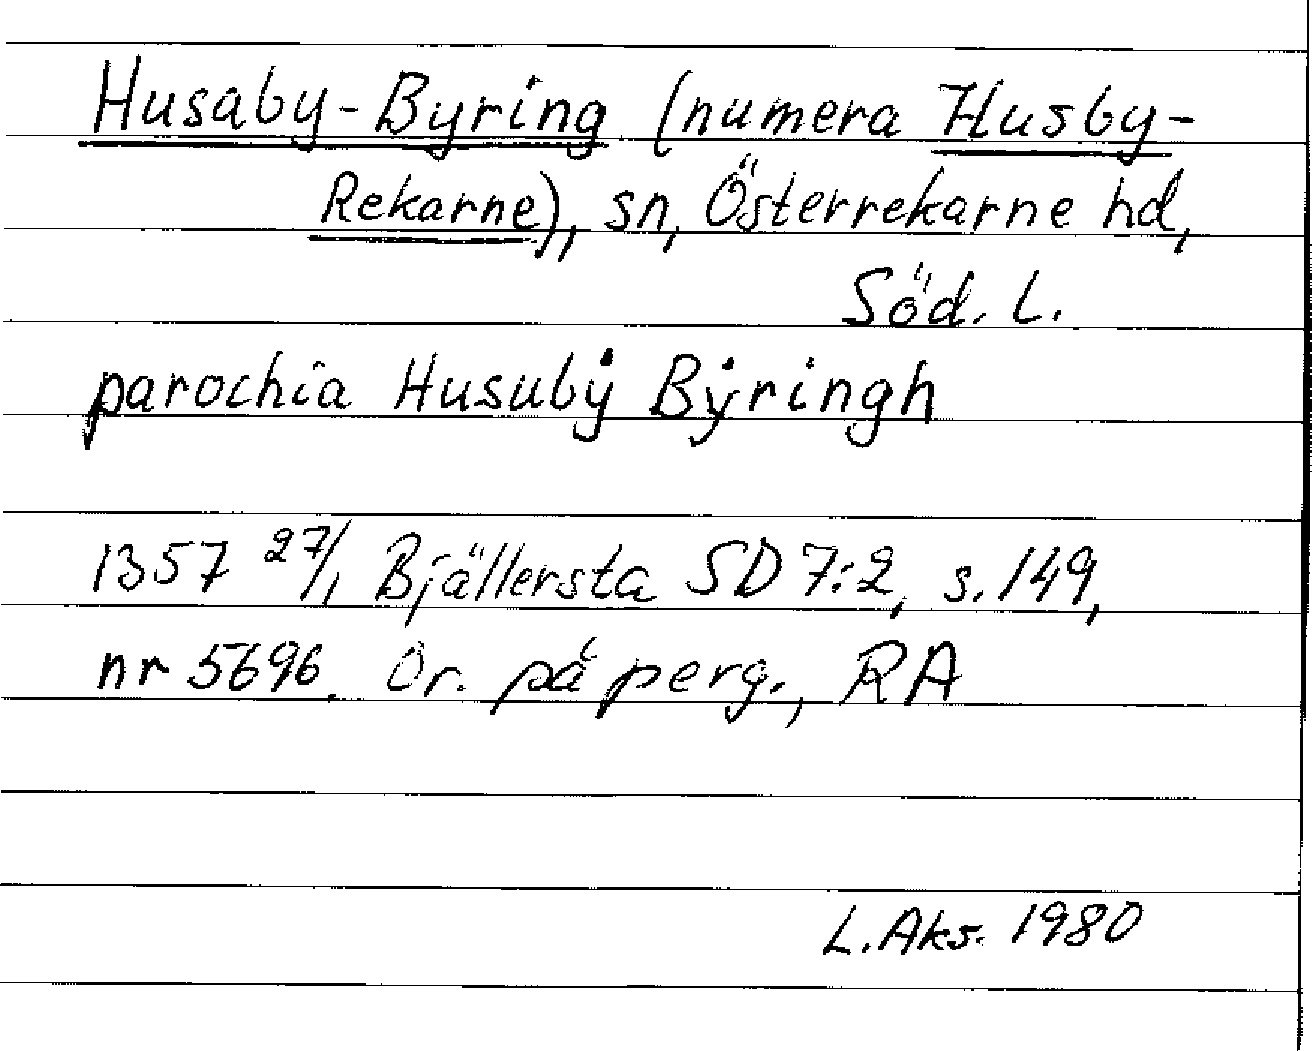 Husaby-Byring (numera Husby-
Rekarne), sn, Österrekarne hd,
Söd. L.
parochia Husubẏ Bẏringh
1357 27/1 Bjällersta SD 7:2, s. 149,
nr 5696. Or. på perg., RA
L. Aks. 1980